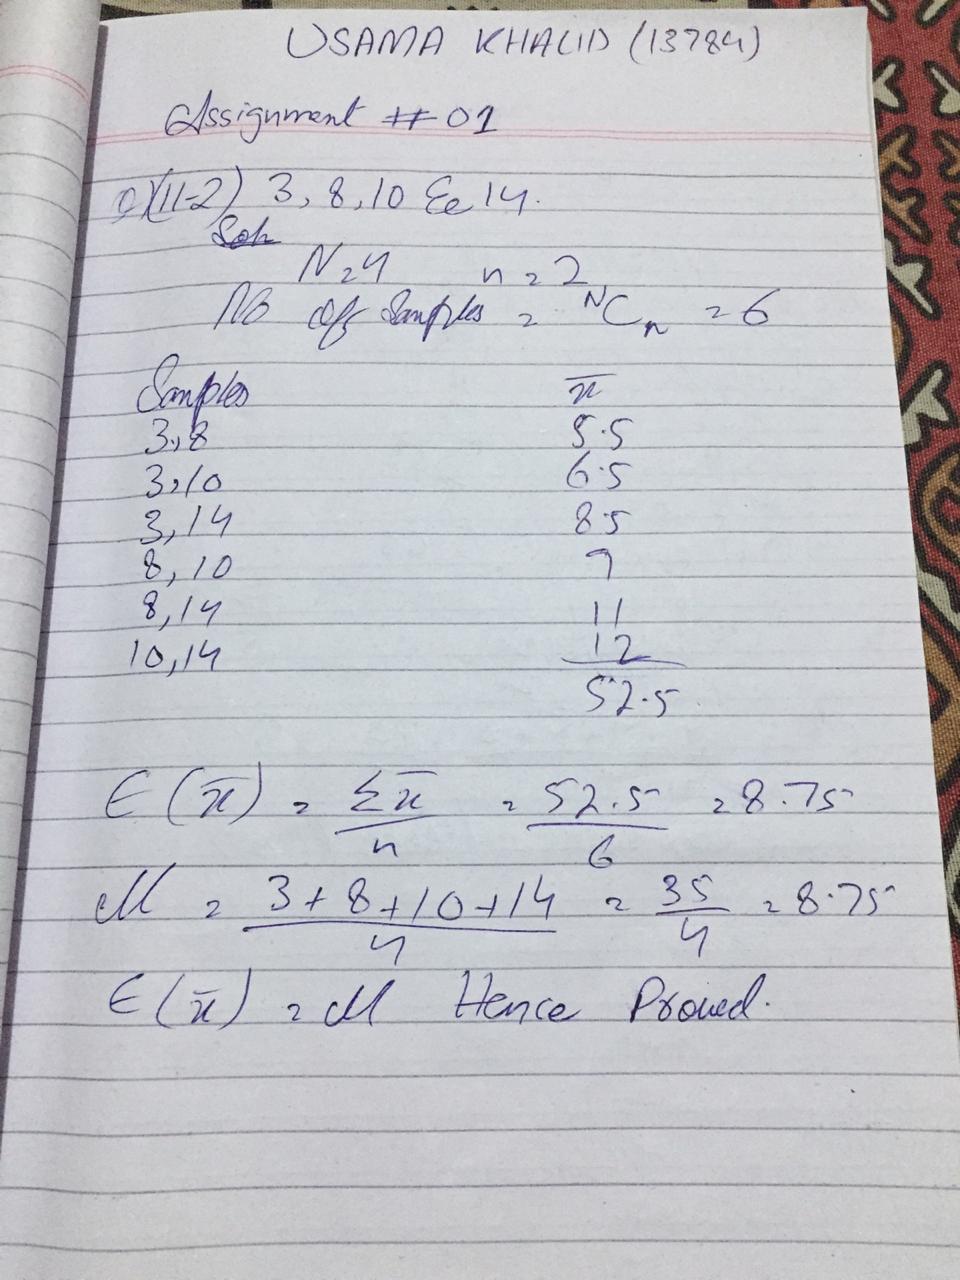 USAMA KHALID (13784)
Assignment # 01
Q)(11-2) 3, 8, 10 & 14.
Soln
N = 4 n = 2
No of Samples = NCn = 6
Samples x̄
3,8 5.5
3,10 6.5
3,14 8.5
8,10 9
8,14 11
10,14 12
52.5
E(x̄) = Σx̄/n = 52.5/6 = 8.75
M = 3+8+10+14/4 = 35/4 = 8.75
E(x̄) = M Hence Proved.